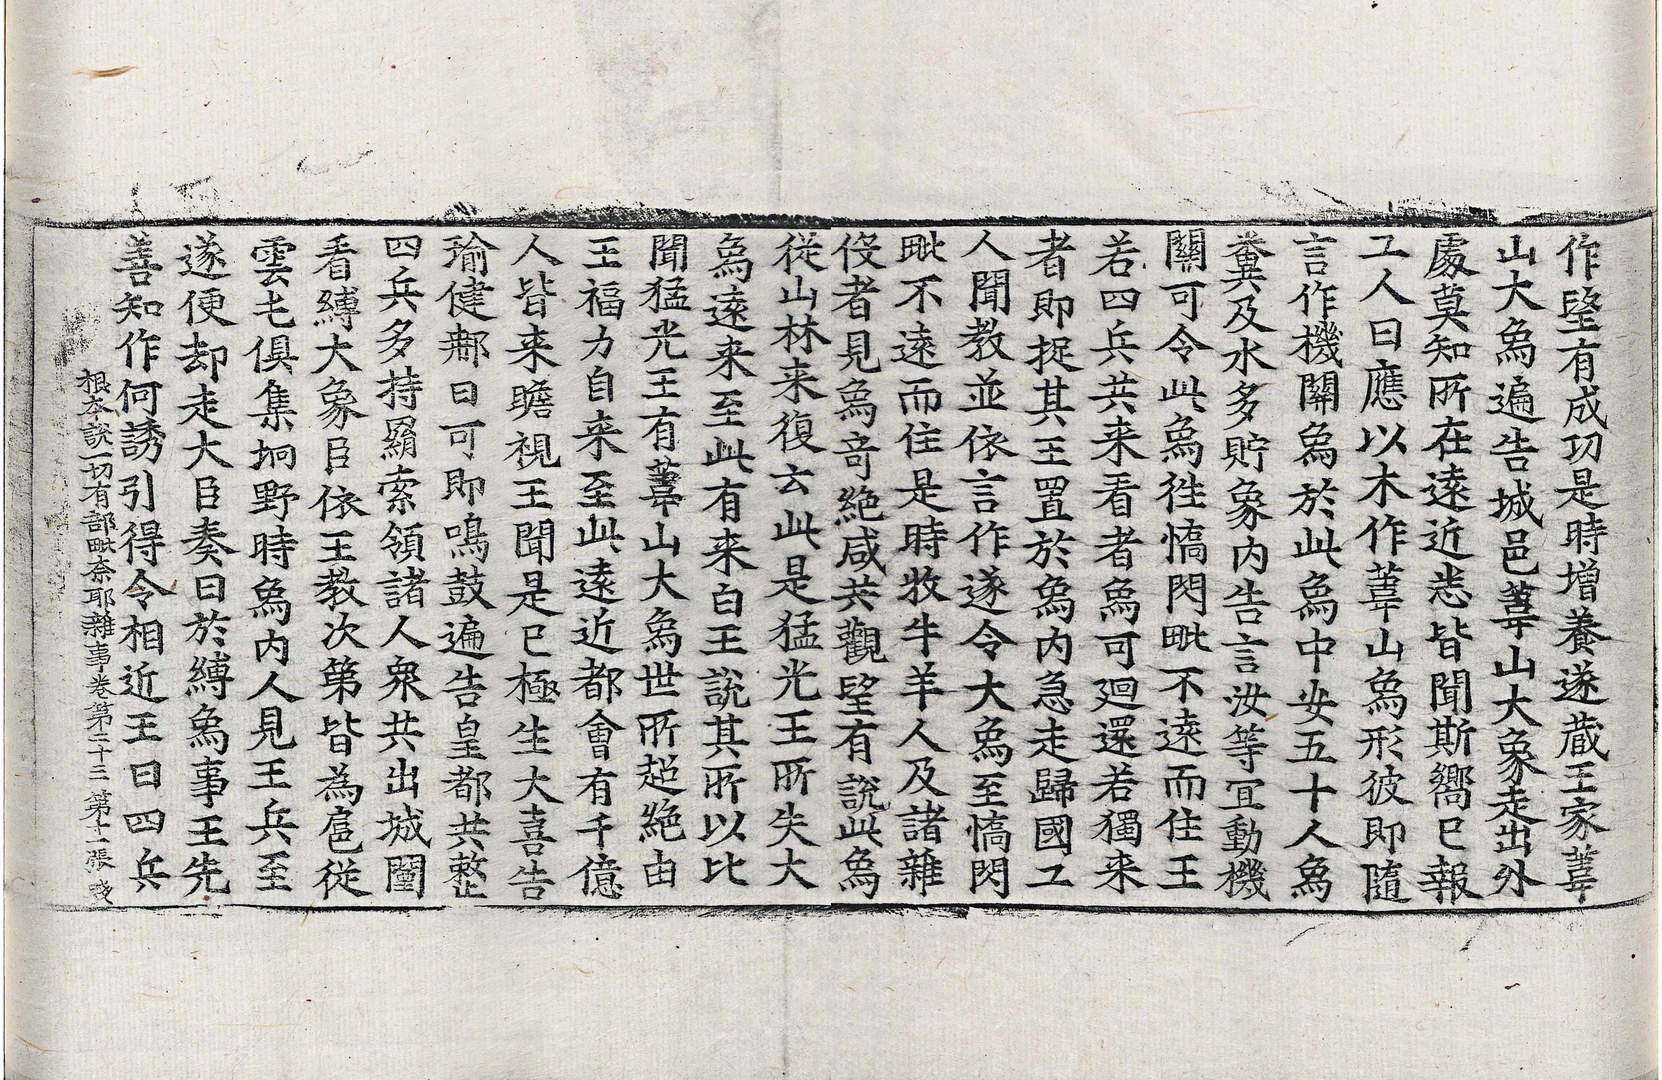 作望有成功是時增養遂蔵王家葦
山大爲遍告城邑葦山大象走出外
處莫知所在遠近悉皆聞斯嚮已報
工人曰應以木作葦山爲形彼即隨
言作機關爲於此爲中安五十人爲
糞及水多貯象内告言汝等冝動機
關可令此爲徃憍閃毗不遠而住王
若四兵共来看者爲可廻還若獨来
者即捉其王置於爲内急走歸國工
人聞教並依言作遂令大爲至憍閃
毗不遠而住是時牧牛羊人及諸雜
伇者見爲竒絶咸共觀望有說此爲
從山林来復云此是猛光王所失大
爲遠来至此有来白王說其所以比
聞猛光王有葦山大爲世所超絶由
王福力自来至此遠近都會有千億
人皆来瞻視王聞是已極生大喜告
瑜健鄁曰可即鳴鼓遍告皇都共整
四兵多持羂索領諸人衆共出城闉
看縛大象臣依王教次第皆為扈從
雲屯俱集坰野時爲内人見王兵至
遂便却走大臣奏曰於縛爲事王先
善知作何誘引得令相近王曰四兵
根本說一切有部毗奈耶雜事卷第二十三 第十一張 㦮